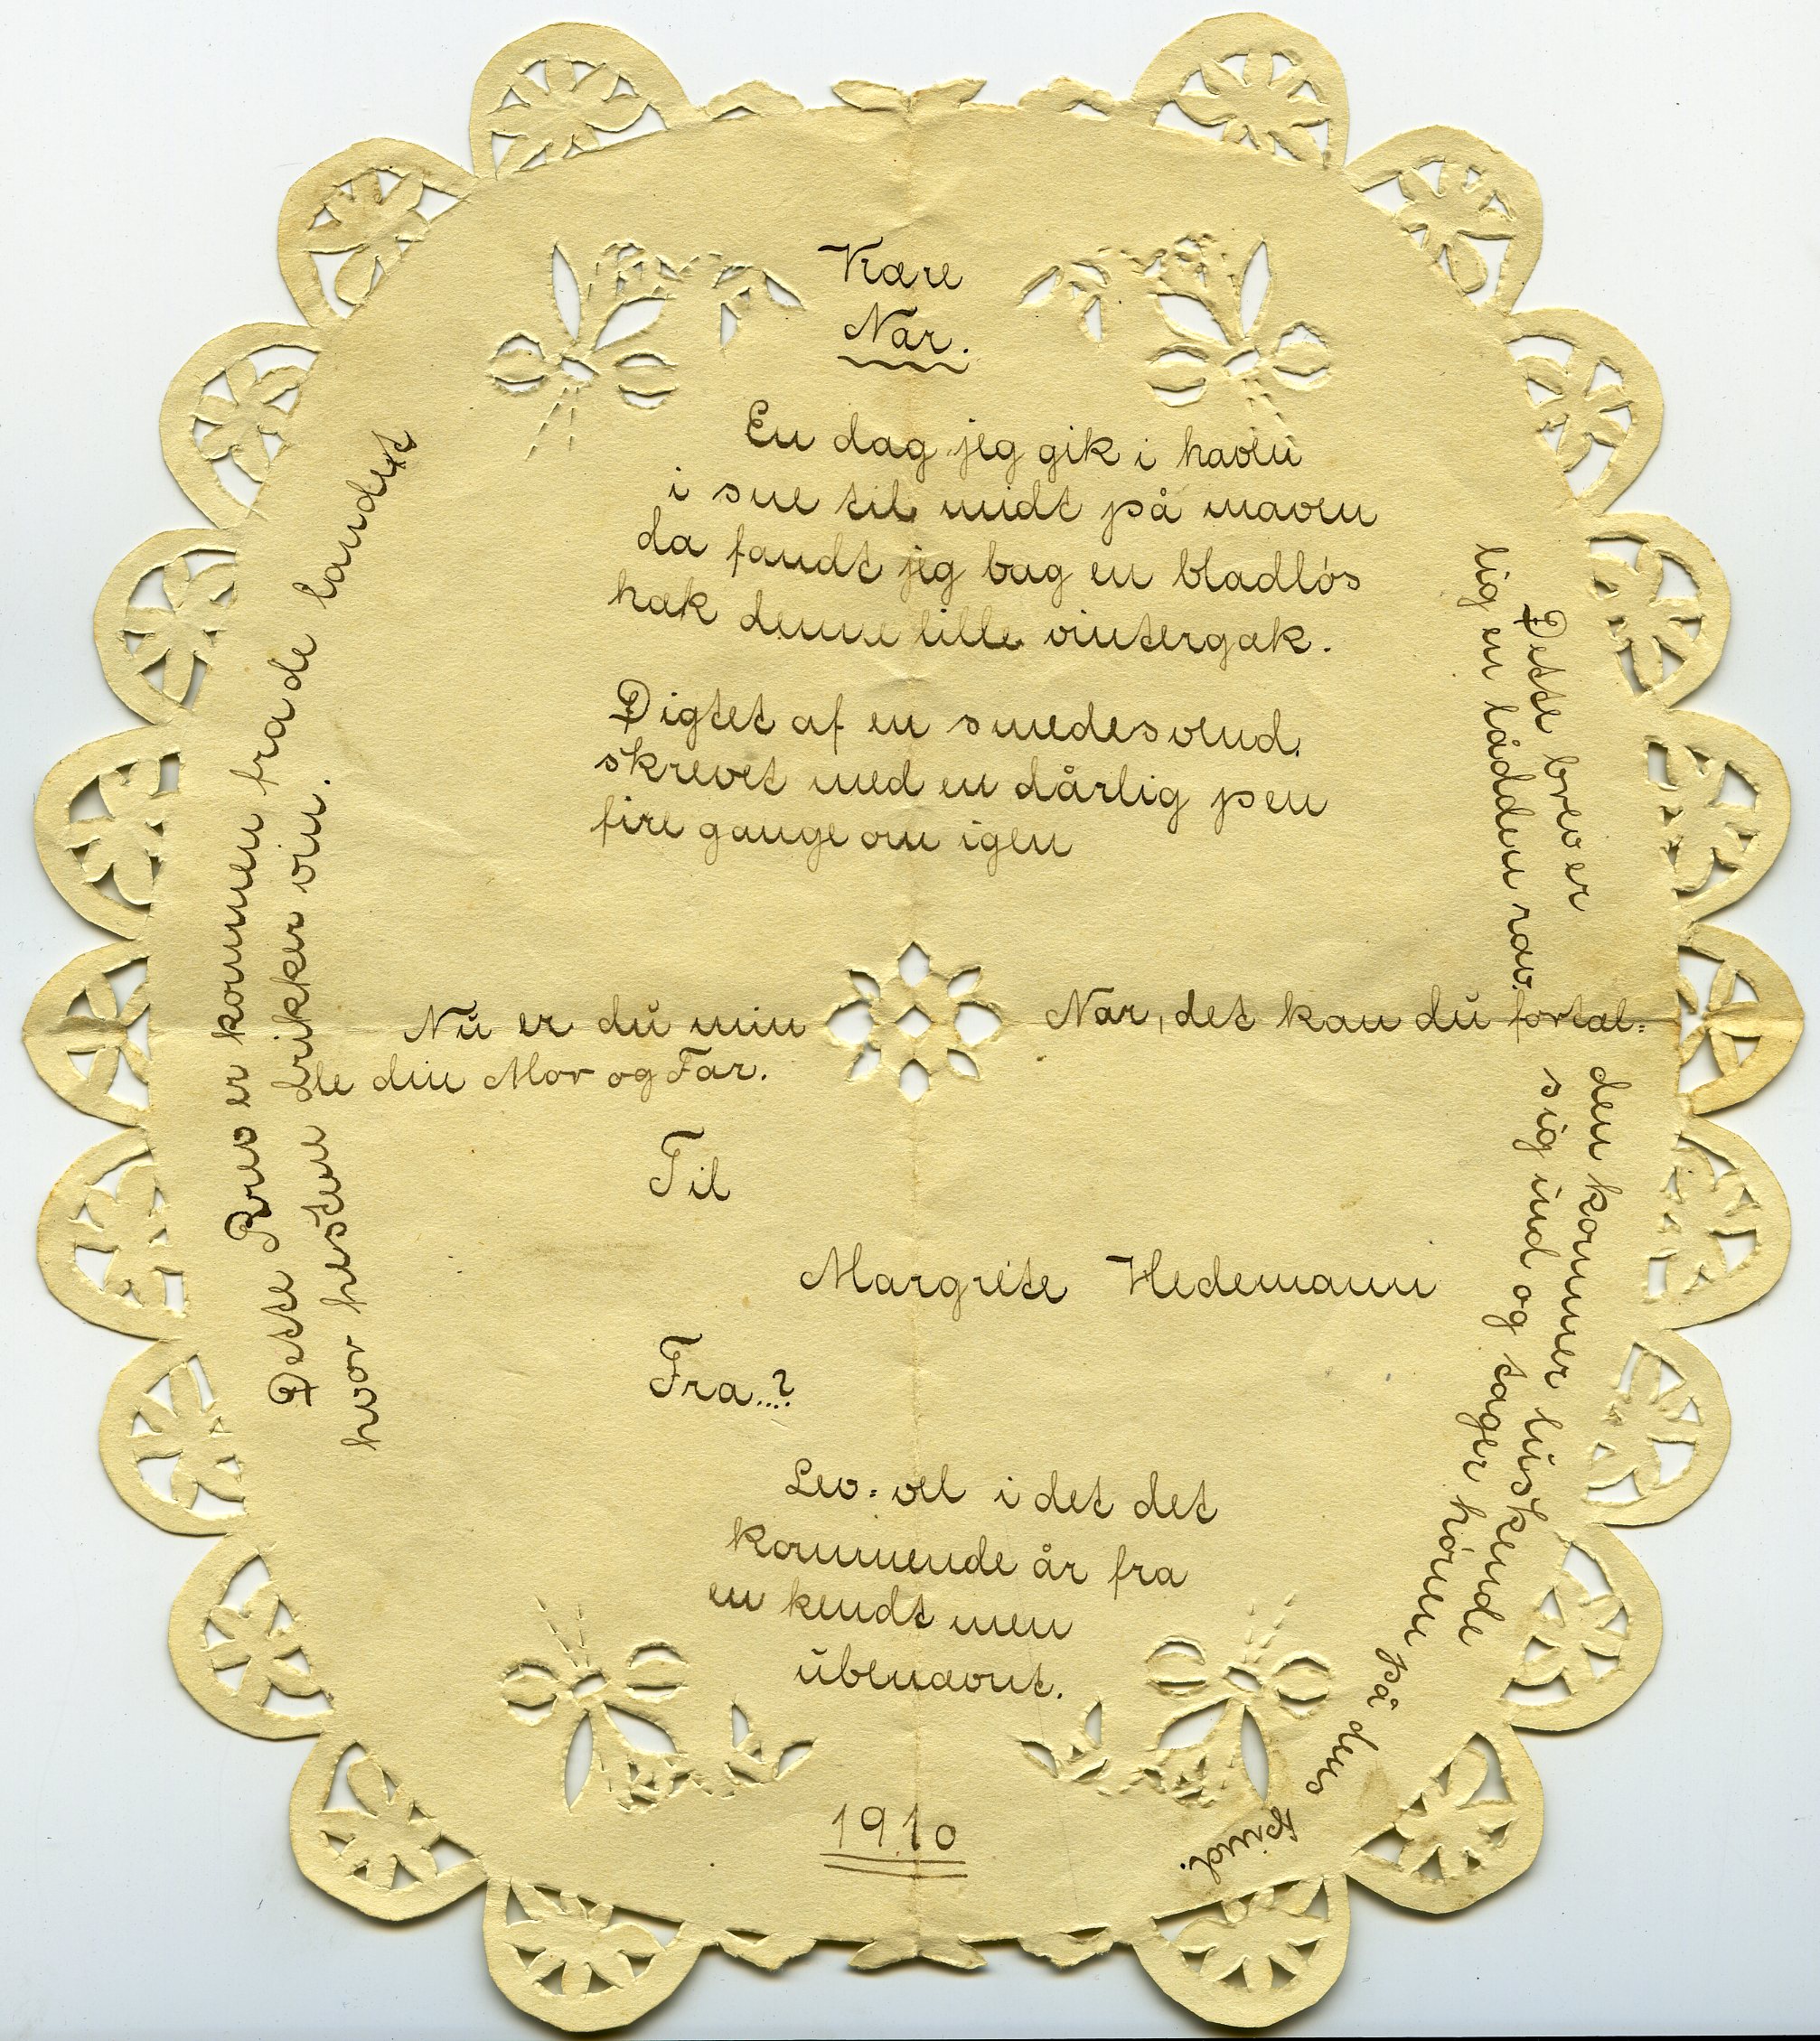 Kære
Nar.
En dag jeg gik i haven
i sne til midt på maven
da fandt jeg bag en bladløs
hæk denne lille vintergæk.
Digtet af en smedesvend.
skrevet med en dårlig pen
fire gange om igen
Nu er du min Nar, det kan du fortæl=
le din Mor og Far.
Til
Margrete Hedemann
Fra...?
Lev=vel i det det
kommende år fra
en kendt men
ubenævnt.
1910
Dette Brev er kommen fra de landet
hvor hestene drikker vin.
Dette brev er
lig en lådden ræv.
den kommer luskende
sig ind og tager hønen på dens
pind.